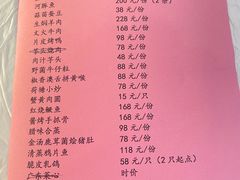 河豚鱼 (2条)
蒜苗蚕豆 38元/份
生焖羊肉 228元/份
文火牛肉 168元/份
片皮烤鸭 98元/份
芋头烧肉
肉汁羊头 78元/份
野菌牛仔粒 88元/份
椒香澳舌拼黄喉 88元/份
荷塘小炒 78元/份
蟹黄肉圆 15元/只
红烧鮰鱼 168元/份
黄烤手抓骨 168元/份
腊味合蒸 98元/份
金汤鹿茸菌烩猪肚 78元/份
清蒸鸦片鱼 118元/份
脆皮乳鸽 58元/只 (2只起点)
广东菜心 时价